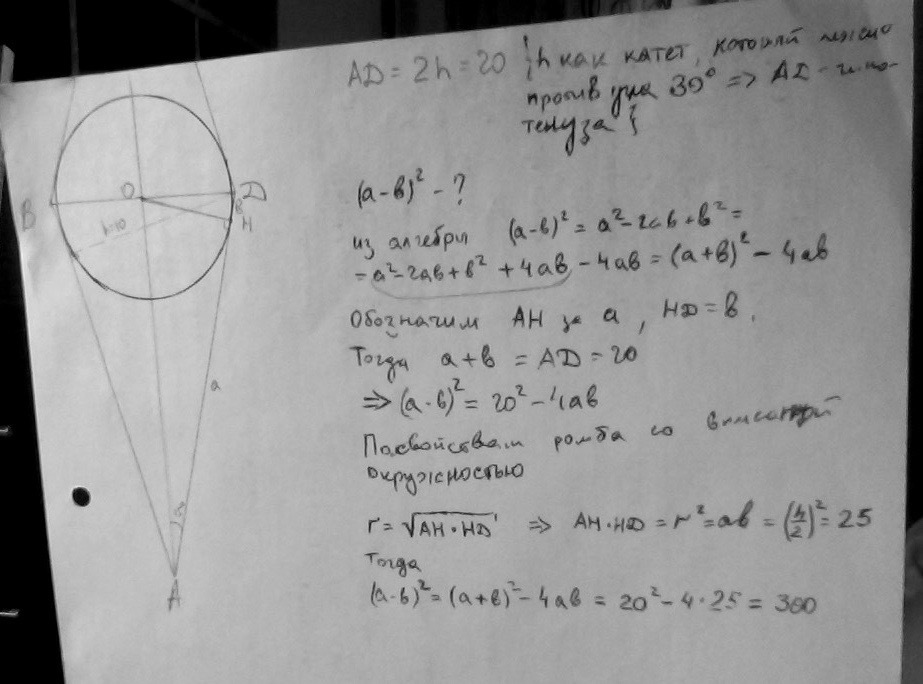 AD = 2h = 20 {h как катет, который лежит
против угла 30° => AD - гипо-
тенуза}
(a-b)² - ?
из алгебры (a-b)² = a²-2ab+b² =
= a²-2ab+b² + 4ab - 4ab = (a+b)² - 4ab
Обозначим AH за a, HD = b.
Тогда a+b = AD = 20
=> (a-b)² = 20² - 4ab
По свойствам ромба со вписанной
окружностью
r = √AH·HD => AH·HD = r² = ab = (h/2)² = 25
тогда
(a-b)² = (a+b)² - 4ab = 20² - 4·25 = 300
B
O
D
b
H
h=10
a
30
A